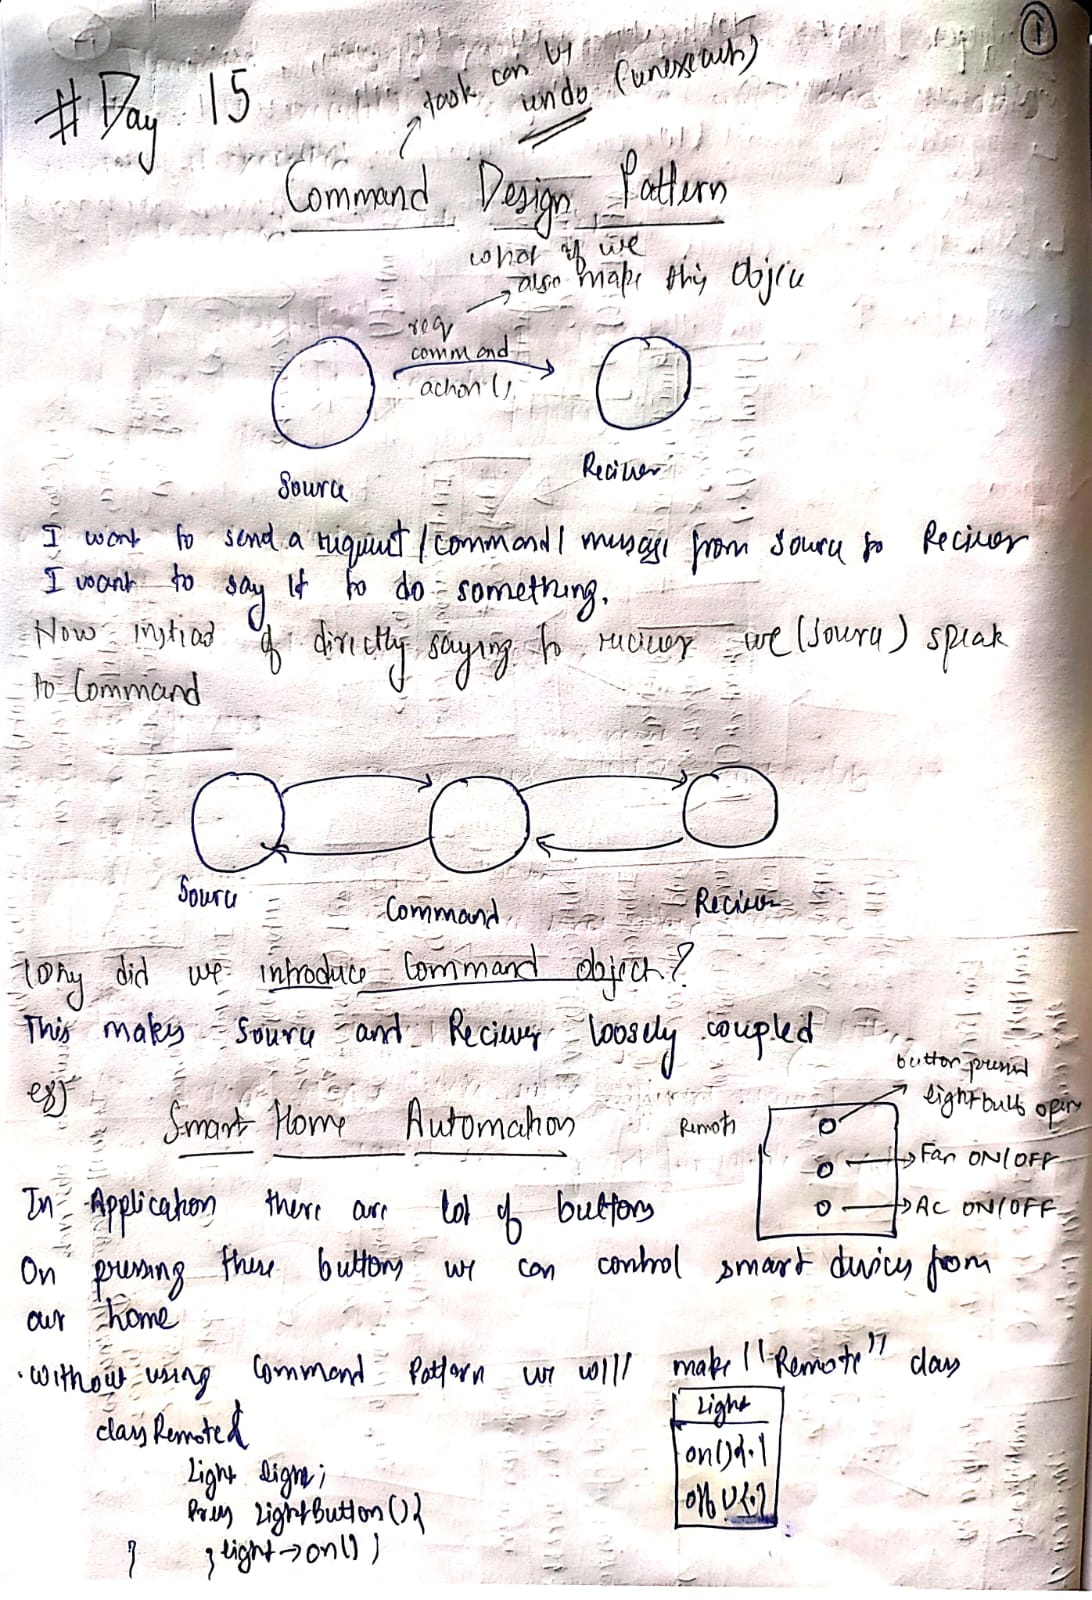 1
# Day 15
task can be
undo (unexecute)
Command Design Pattern
what if we
also make this Object
req
command
action()
Source
Reciever
I want to send a request / command / message from Source to Reciever
I want to say it to do something.
Now instead of directly saying to reciever we (source) speak
to Command
Source
Command
Reciever
Why did we introduce Command object?
This makes Source and Reciever loosely coupled
button pressed
eg)
light bulb open
Smart Home Automation
Remote
Fan ON/OFF
In Application there are lot of buttons
AC ON/OFF
On pressing these buttons we can control smart devices from
our home
. Without using Command Pattern we will make "Remote" class
class Remote{
Light
Light light;
on(){.}
Press LightButton(){
off(){.}
light->on();
}
}